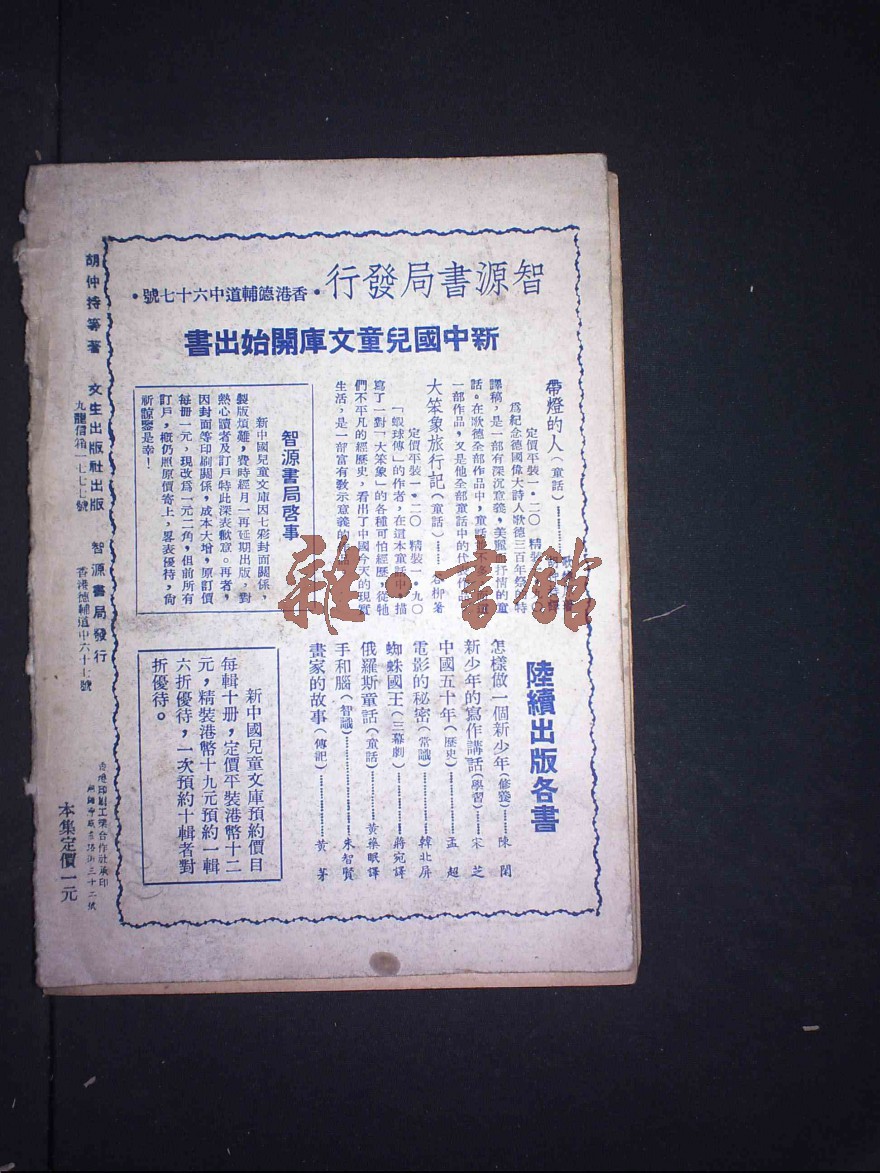 智源書局發行・香港德輔道中六十七號・
新中國兒童文庫開始出書
帶燈的人（童話）
定價平裝一・二〇　精裝一・九〇
爲紀念德國偉大詩人歌德三百年祭的特
譯稿，是一部有深沉意義，美麗而抒情的童
話。在歌德全部作品中，童話
一部作品，又是他全部童話中的代表作品
大笨象旅行記（童話）……谷柳著
定價平裝一・二〇　精裝一・九〇
「蝦球傳」的作者，在這本童話中，描
寫了一對「大笨象」的各種可怕經歷，從牠
們不平凡的經歷史，看出了中國今天的現實
生活，是一部富有敎示意義的作品。
智源書局啓事
新中國兒童文庫因七彩封面關係，
製版煩難，費時經月一再延期出版，對
熱心讀者及訂戶特此深表歉意。再者，
因封面等印刷關係，成本大增，原訂價
每冊一元，現改爲一元二角，但前所有
訂戶，概仍照原價寄上，畧表優待，尙
祈諒鑒是幸！
陸續出版各書
怎樣做一個新少年（修養）……陳閑
新少年的寫作講話（學習）……宋芝
中國五十年（歷史）……孟超
電影的秘密（常識）……韓北屏
蜘蛛國王（三幕劇）……蔣宛譯
俄羅斯童話（童話）……黃藥眠譯
手和腦（智識）……朱智賢
畫家的故事（傳記）……黃茅
新中國兒童文庫預約價目
每輯十册，定價平裝港幣十二
元，精裝港幣十九元預約一輯
六折優待，一次預約十輯者對
折優待。
胡仲持等著
文生出版社出版
九龍信箱一七七七號
智源書局發行
香港德輔道中六十七號
香港印刷工業合作社承印
本集定價一元
雜・書館